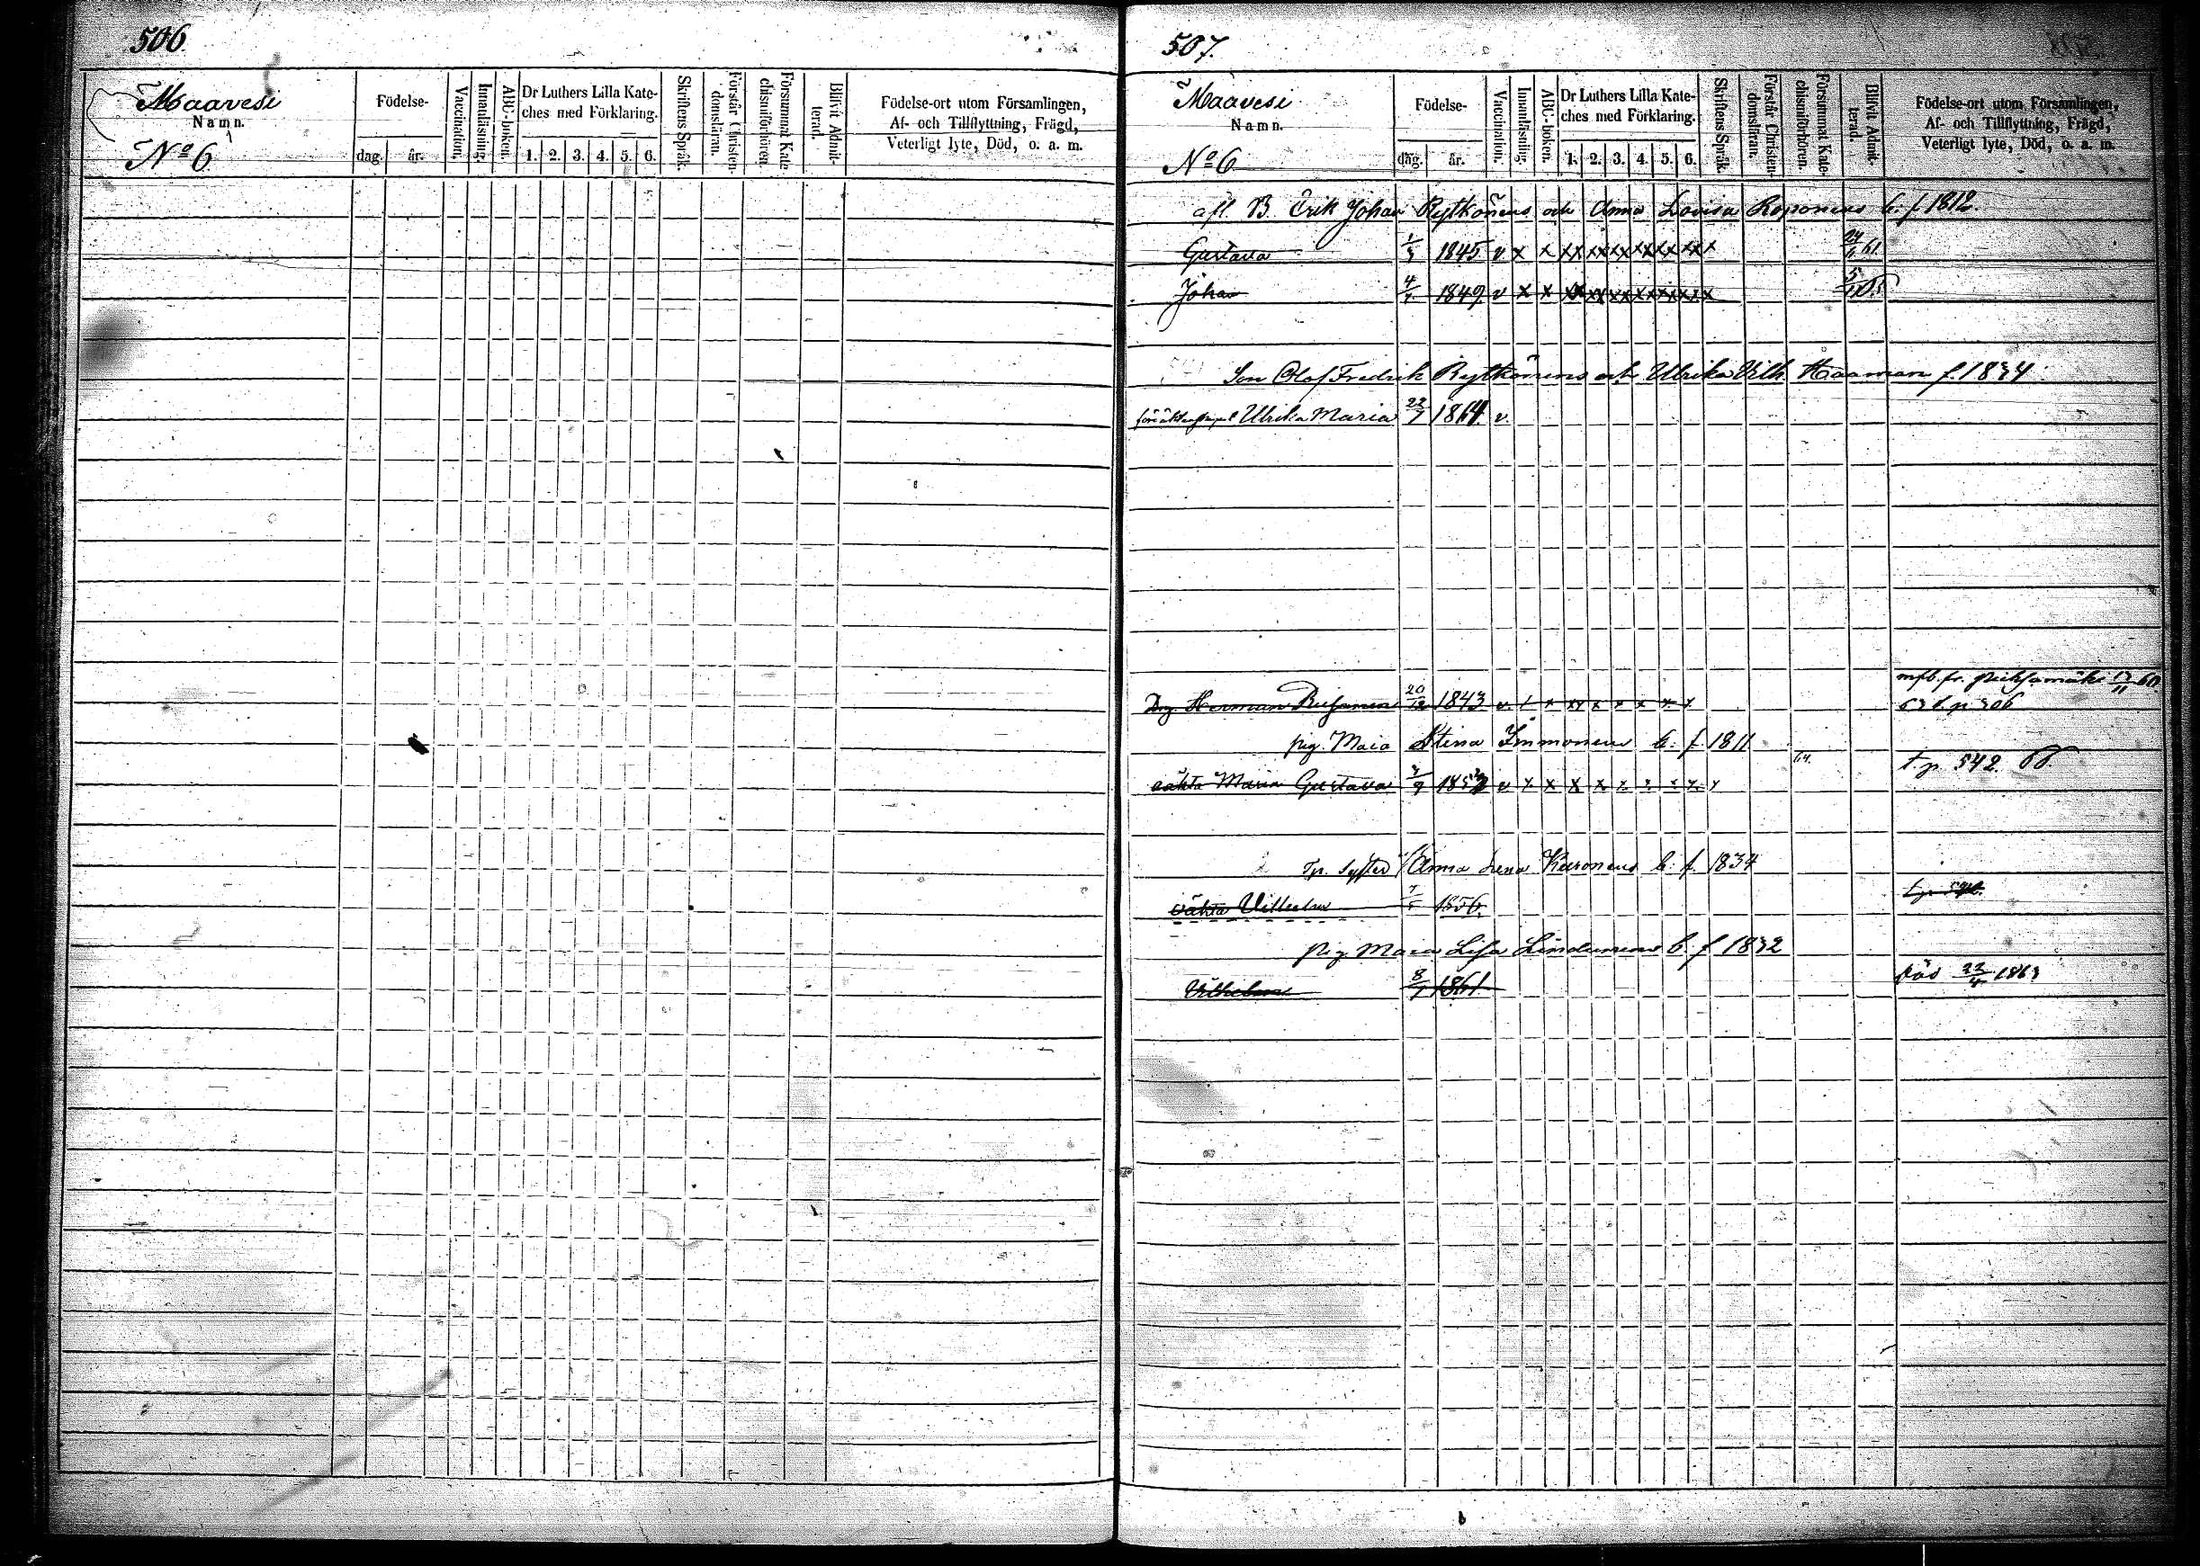 506
Maavesi
Namn.
No 6
Födelse-
dag.
år.
Vaccination.
Innanläsning.
ABC-boken.
Dr Luthers Lilla Kate-
ches med Förklaring.
1. 2. 3. 4. 5. 6.
Skriftens Språk.
Förstår Christen-
domsläran.
Försummat Kate-
chismiförhören.
Blifvit Admit-
terad.
Födelse-ort utom Församlingen,
Af- och Tillflyttning, Frägd,
Veterligt lyte, Död, o. a. m.
507.
Maavesi
Namn.
No 6
Födelse-
dag.
år.
Vaccination.
Innanläsning.
ABC-boken.
Dr Luthers Lilla Kate-
ches med Förklaring.
1. 2. 3. 4. 5. 6.
Skriftens Språk.
Förstår Christen-
domsläran.
Försummat Kate-
chismiförhören.
Blifvit Admit-
terad.
Födelse-ort utom Församlingen,
Af- och Tillflyttning, Frägd,
Veterligt lyte, Död, o. a. m.
afl. B. Erik Johan Rytkönens och Anna Lovisa Roponens b. f. 1812.
Gustava 1845 v x x xx xx xx xx xx xx x
Johan 4/ 1849 v x x xx xx xx xx xx xx x
Son Olof Fredrik Rytkönens och Ulrika Vilh. Haaman f. 1834
Ulrika Maria 22/7 1864 v.
mfb. fr. 60.
Drg. Herman 20/12 1843 v. x x xx x x x x x
pig. Maia Stina Immonens b. f. 1811
64.
t. p. 542.
oäkta Maria Gustava 3/9 185 v x x x x x x x x x
Tp. syster Anna Lena Kuronens b. f. 1834
oäkta Vilhelm 1856.
pig Maria Lisa b. f 1832
Vilhelm 8/1 1861
död 22/4 1863